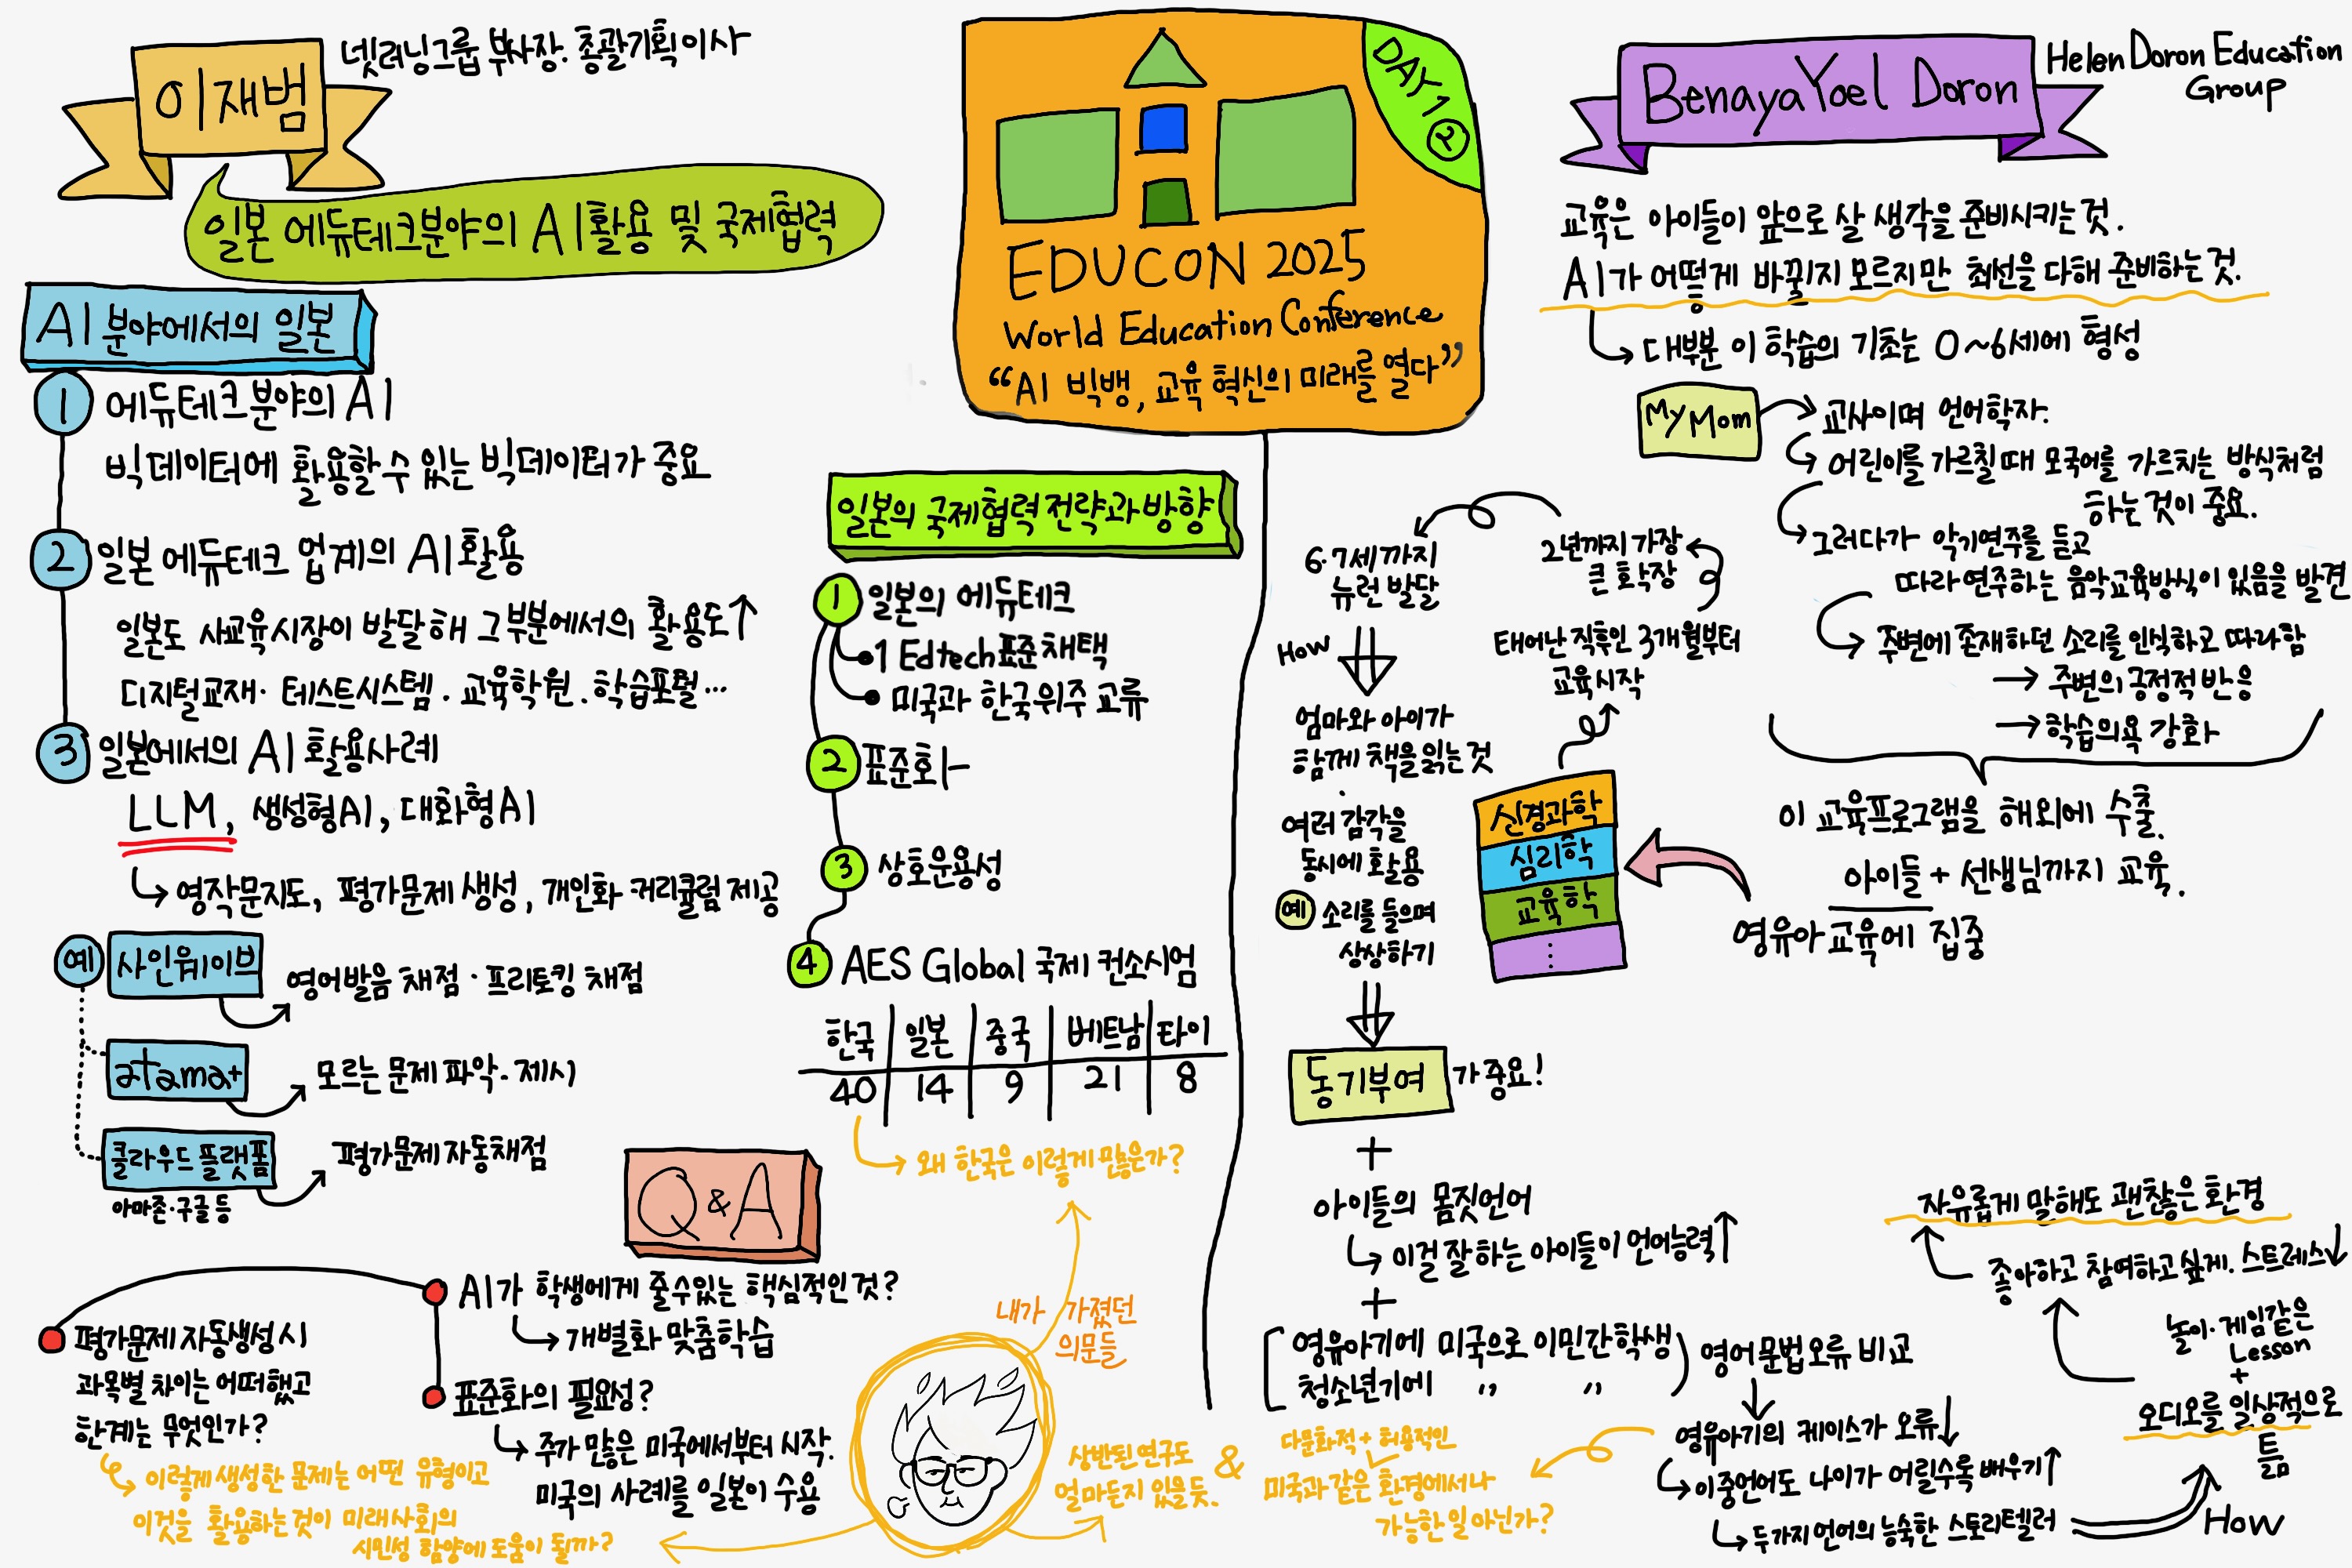 이재범
넷러닝그룹 부사장. 총괄기획이사
일본 에듀테크분야의 AI활용 및 국제협력
AI 분야에서의 일본
1 에듀테크분야의 AI
빅데이터에 활용할 수 있는 빅데이터가 중요
2 일본 에듀테크 업계의 AI활용
일본도 사교육시장이 발달해 그부분에서의 활용도↑
디지털교재· 테스트시스템 · 교육학원 . 학습포털…
3 일본에서의 AI 활용사례
LLM, 생성형AI, 대화형AI
영작문지도, 평가문제 생성, 개인화 커리큘럼 제공
예 사인웨이브
영어발음 채점 · 프리토킹 채점
atama+
모르는 문제 파악 - 제시
클라우드 플랫폼
평가문제 자동채점
아마존·구글 등
DAY1 ②
EDUCON 2025
World Education Conference
“AI 빅뱅, 교육 혁신의 미래를 열다”
일본의 국제협력 전략과 방향
1 일본의 에듀테크
1 Edtech표준채택
미국과 한국위주 교류
2 표준화
3 상호운용성
4 AES Global 국제 컨소시엄
한국 일본 중국 베트남 타이
40 14 9 21 8
왜 한국은 이렇게 많은가?
Q&A
AI가 학생에게 줄수있는 핵심적인 것?
개별화 맞춤학습
표준화의 필요성?
주가 많은 미국에서부터 시작.
미국의 사례를 일본이 수용
평가문제 자동생성 시
과목별 차이는 어떠했고
한계는 무엇인가?
이렇게 생성한 문제는 어떤 유형이고
이것을 활용하는것이 미래사회의
시민성 함양에 도움이 될까?
내가 가졌던
의문들
Benaya Yoel Doron
Helen Doron Education
Group
교육은 아이들이 앞으로 살 생각을 준비시키는 것.
AI가 어떻게 바뀔지 모르지만 최선을 다해 준비하는 것.
대부분 이 학습의 기초는 0~6세에 형성
My Mom
교사이며 언어학자.
어린이를 가르칠때 모국어를 가르치는 방식처럼
하는 것이 중요.
그러다가 악기연주를 듣고
따라 연주하는 음악교육방식이 있음을 발견
주변에 존재하던 소리를 인식하고 따라함
→ 주변의 긍정적 반응
→ 학습의욕 강화
이 교육프로그램을 해외에 수출.
아이들 + 선생님까지 교육.
영유아교육에 집중
신경과학
심리학
교육학
⋮
태어난 직후인 3개월부터
교육시작
2년까지 가장
큰 확장
6·7세까지
뉴런 발달
How
엄마와 아이가
함께 책을 읽는 것
여러 감각을
동시에 활용
예 소리를 들으며
상상하기
동기부여 가 중요!
+
아이들의 몸짓언어
이걸 잘 하는 아이들이 언어능력↑
+
영유아기에 미국으로 이민간학생
청소년기에 〃 〃
영어 문법오류 비교
영유아기의 케이스가 오류↓
이중언어도 나이가 어릴수록 배우기↑
두가지 언어의 능숙한 스토리텔러
How
오디오를 일상적으로
틂
+
놀이·게임같은
Lesson
좋아하고 참여하고 싶게. 스트레스↓
자유롭게 말해도 괜찮은 환경
다문화적 + 허용적인
미국과 같은 환경에서나
가능한 일 아닌가?
&
상반된 연구도
얼마든지 있을 듯.